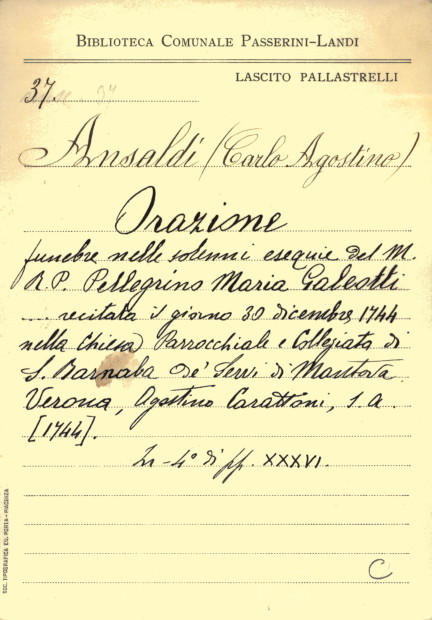 BIBLIOTECA COMUNALE PASSERINI-LANDI
LASCITO PALLASTRELLI
37.
Ansaldi (Carlo Agostino)
Orazione
funebre nelle solenni esequie del M.
R. P. Pellegrino Maria Galeotti
.... recitata il giorno 30 dicembre, 1744
nella Chiesa Parrocchiale e Collegiata di
S. Barnaba de' Servi di Mantova.
Verona, Agostino Carattoni, s. a.
[1744].
In-4° di pp. XXXVI.
SOC. TIPOGRAFICA ED. PORTA - PIACENZA
C